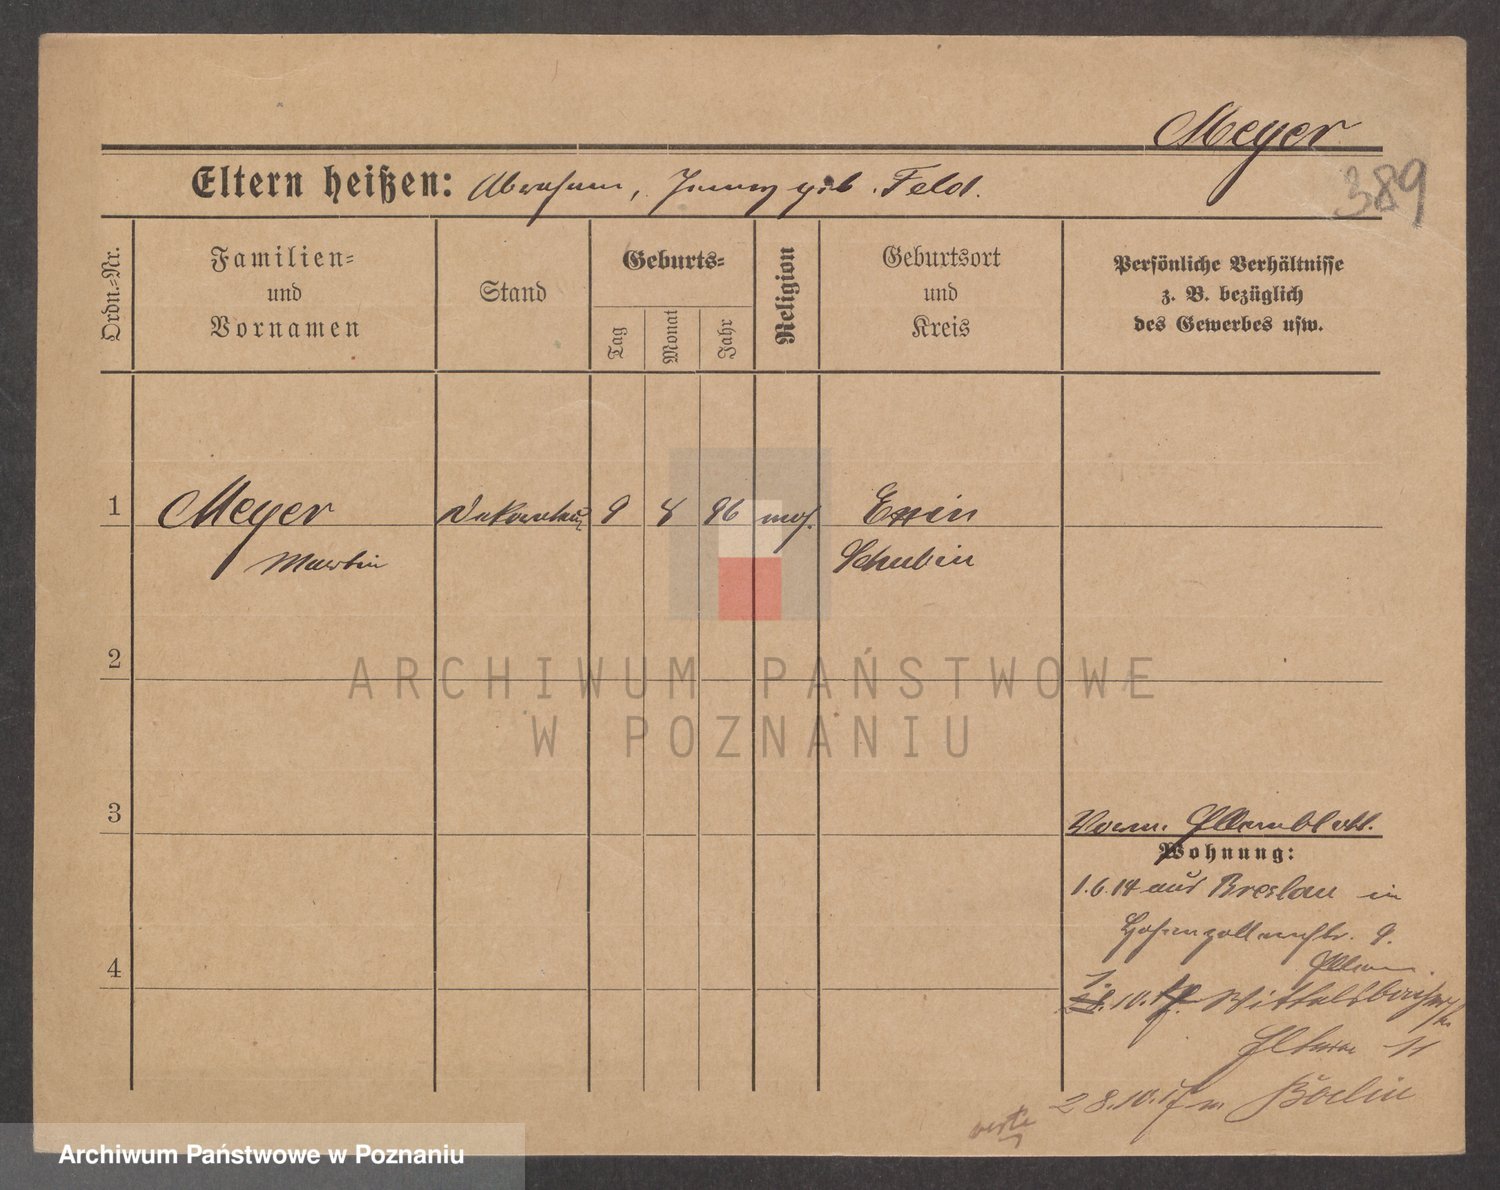 Meyer
389
Eltern heißen: Abraham, Jenny geb. Feld.
Ordn.-Nr.
Familien-
und
Vornamen
Stand
Geburts-
Tag
Monat
Jahr
Religion
Geburtsort
und
Kreis
Persönliche Verhältnisse
z. B. bezüglich
des Gewerbes usw.
1
Meyer
Dekorateur
9
8
96
mos.
Exin
Martin
Schubin
2
ARCHIWUM PAŃSTWOWE
W POZNANIU
3
Wohnung:
1.6.14 aus Breslau in
Hohenzollernstr. 9.
4
Eltern 11
28.10.17 n Berlin
Archiwum Państwowe w Poznaniu